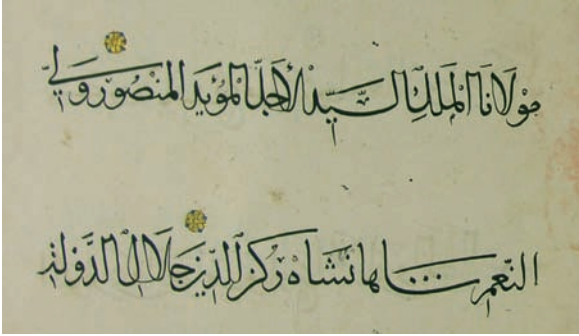 مَوْلَانَا الْمَلِكِ السَّيِّد الأَجَلّ الْمُؤَيَّد الْمَنْصُور وَلِيّ
النِّعَم شَاهَانشَاه رُكْن الدِّين جَلَال الدَّوْلَة